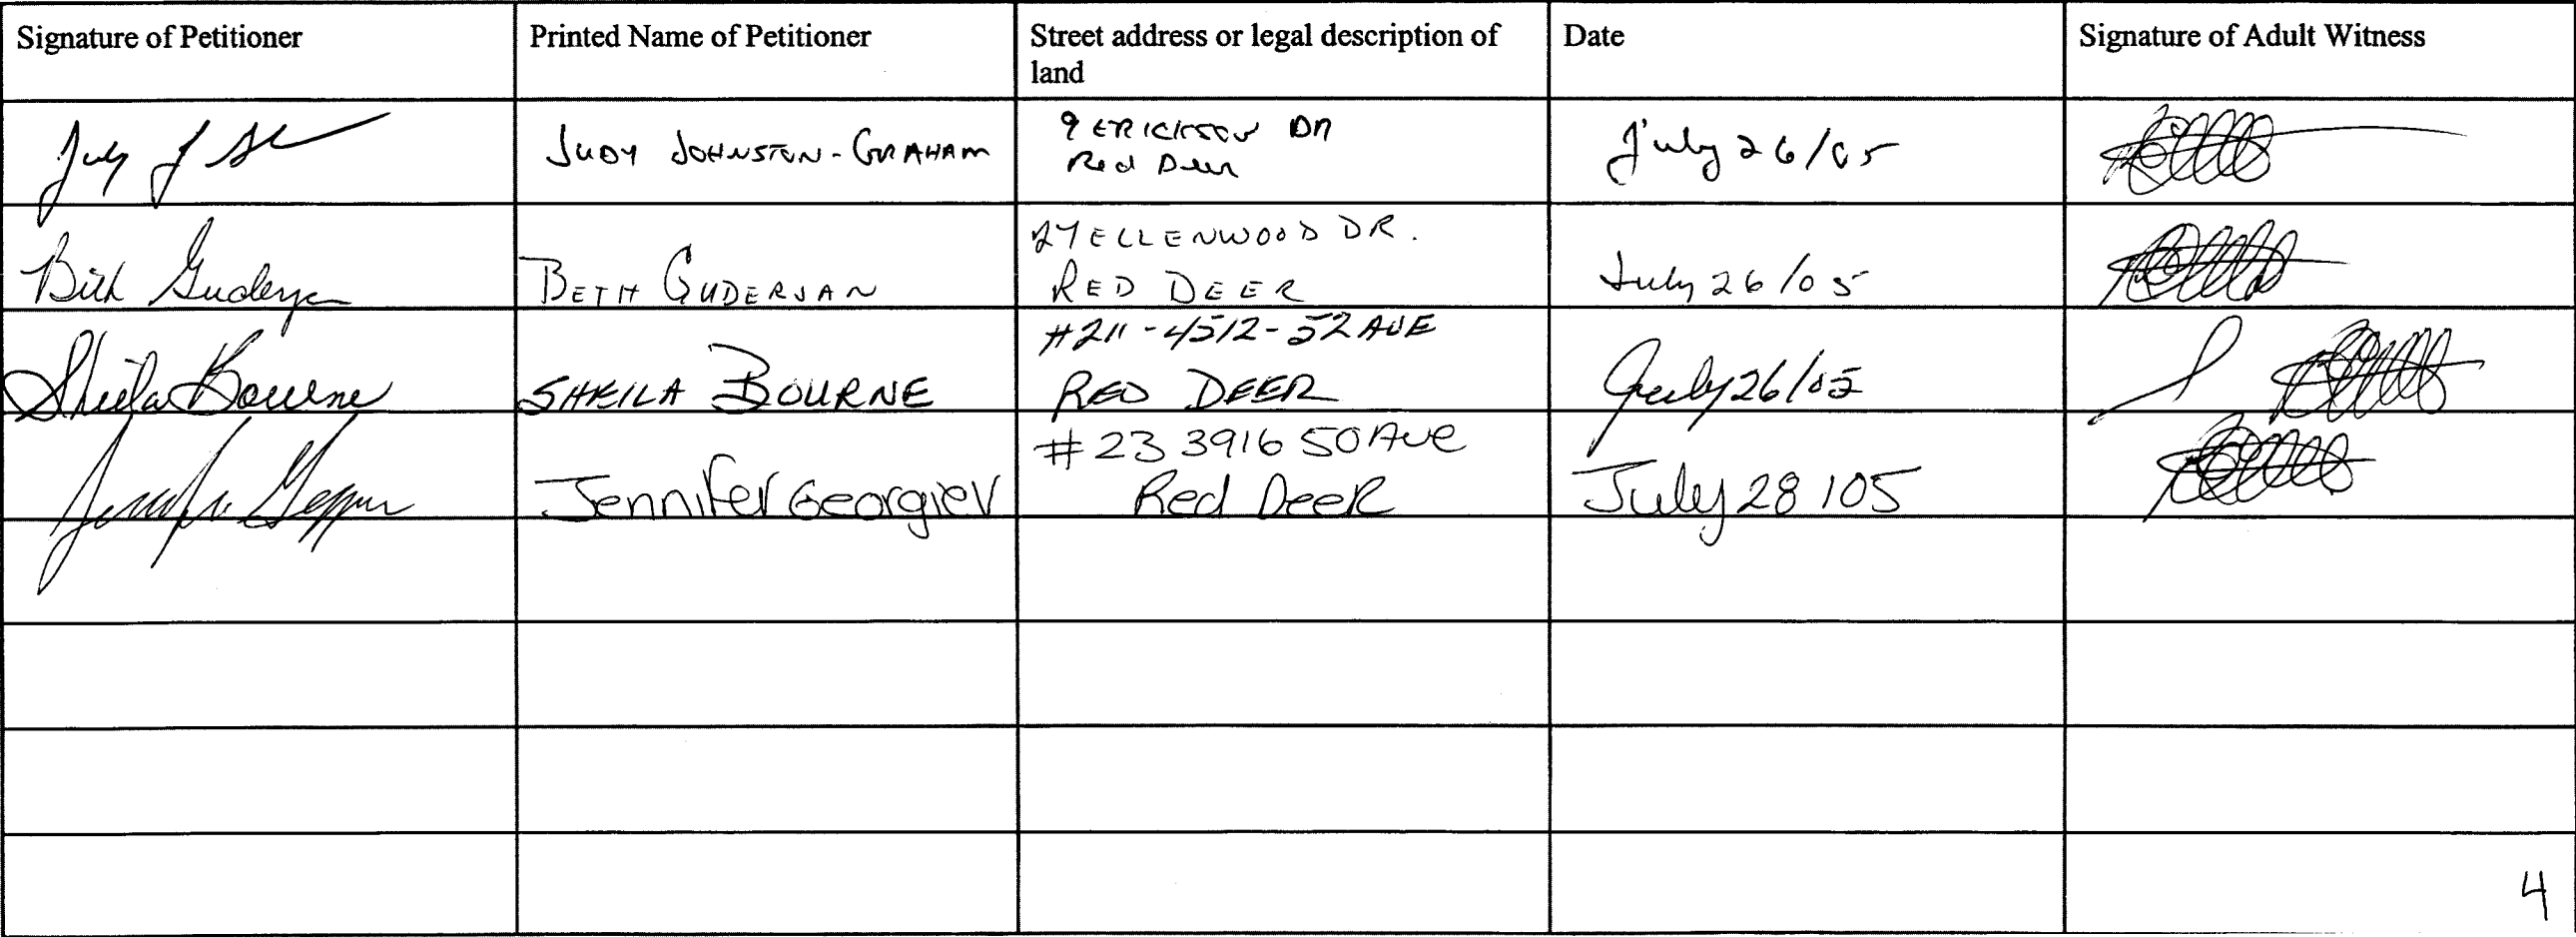 Signature of Petitioner Printed Name of Petitioner Street address or legal description of land Date Signature of Adult Witness
Judy J JUDY JOHNSTON-GRAHAM 9 ERICKSON DR July 26/05
Red Deer
Beth Guderjan BETH GUDERJAN 27 ELLENWOOD DR. July 26/05
RED DEER
Sheila Bourne SHEILA BOURNE #211-4512-52 AVE July 26/05
RED DEER
Jennifer Jennifer Georgiev #23 3916 50 Ave July 28/05
Red Deer
4